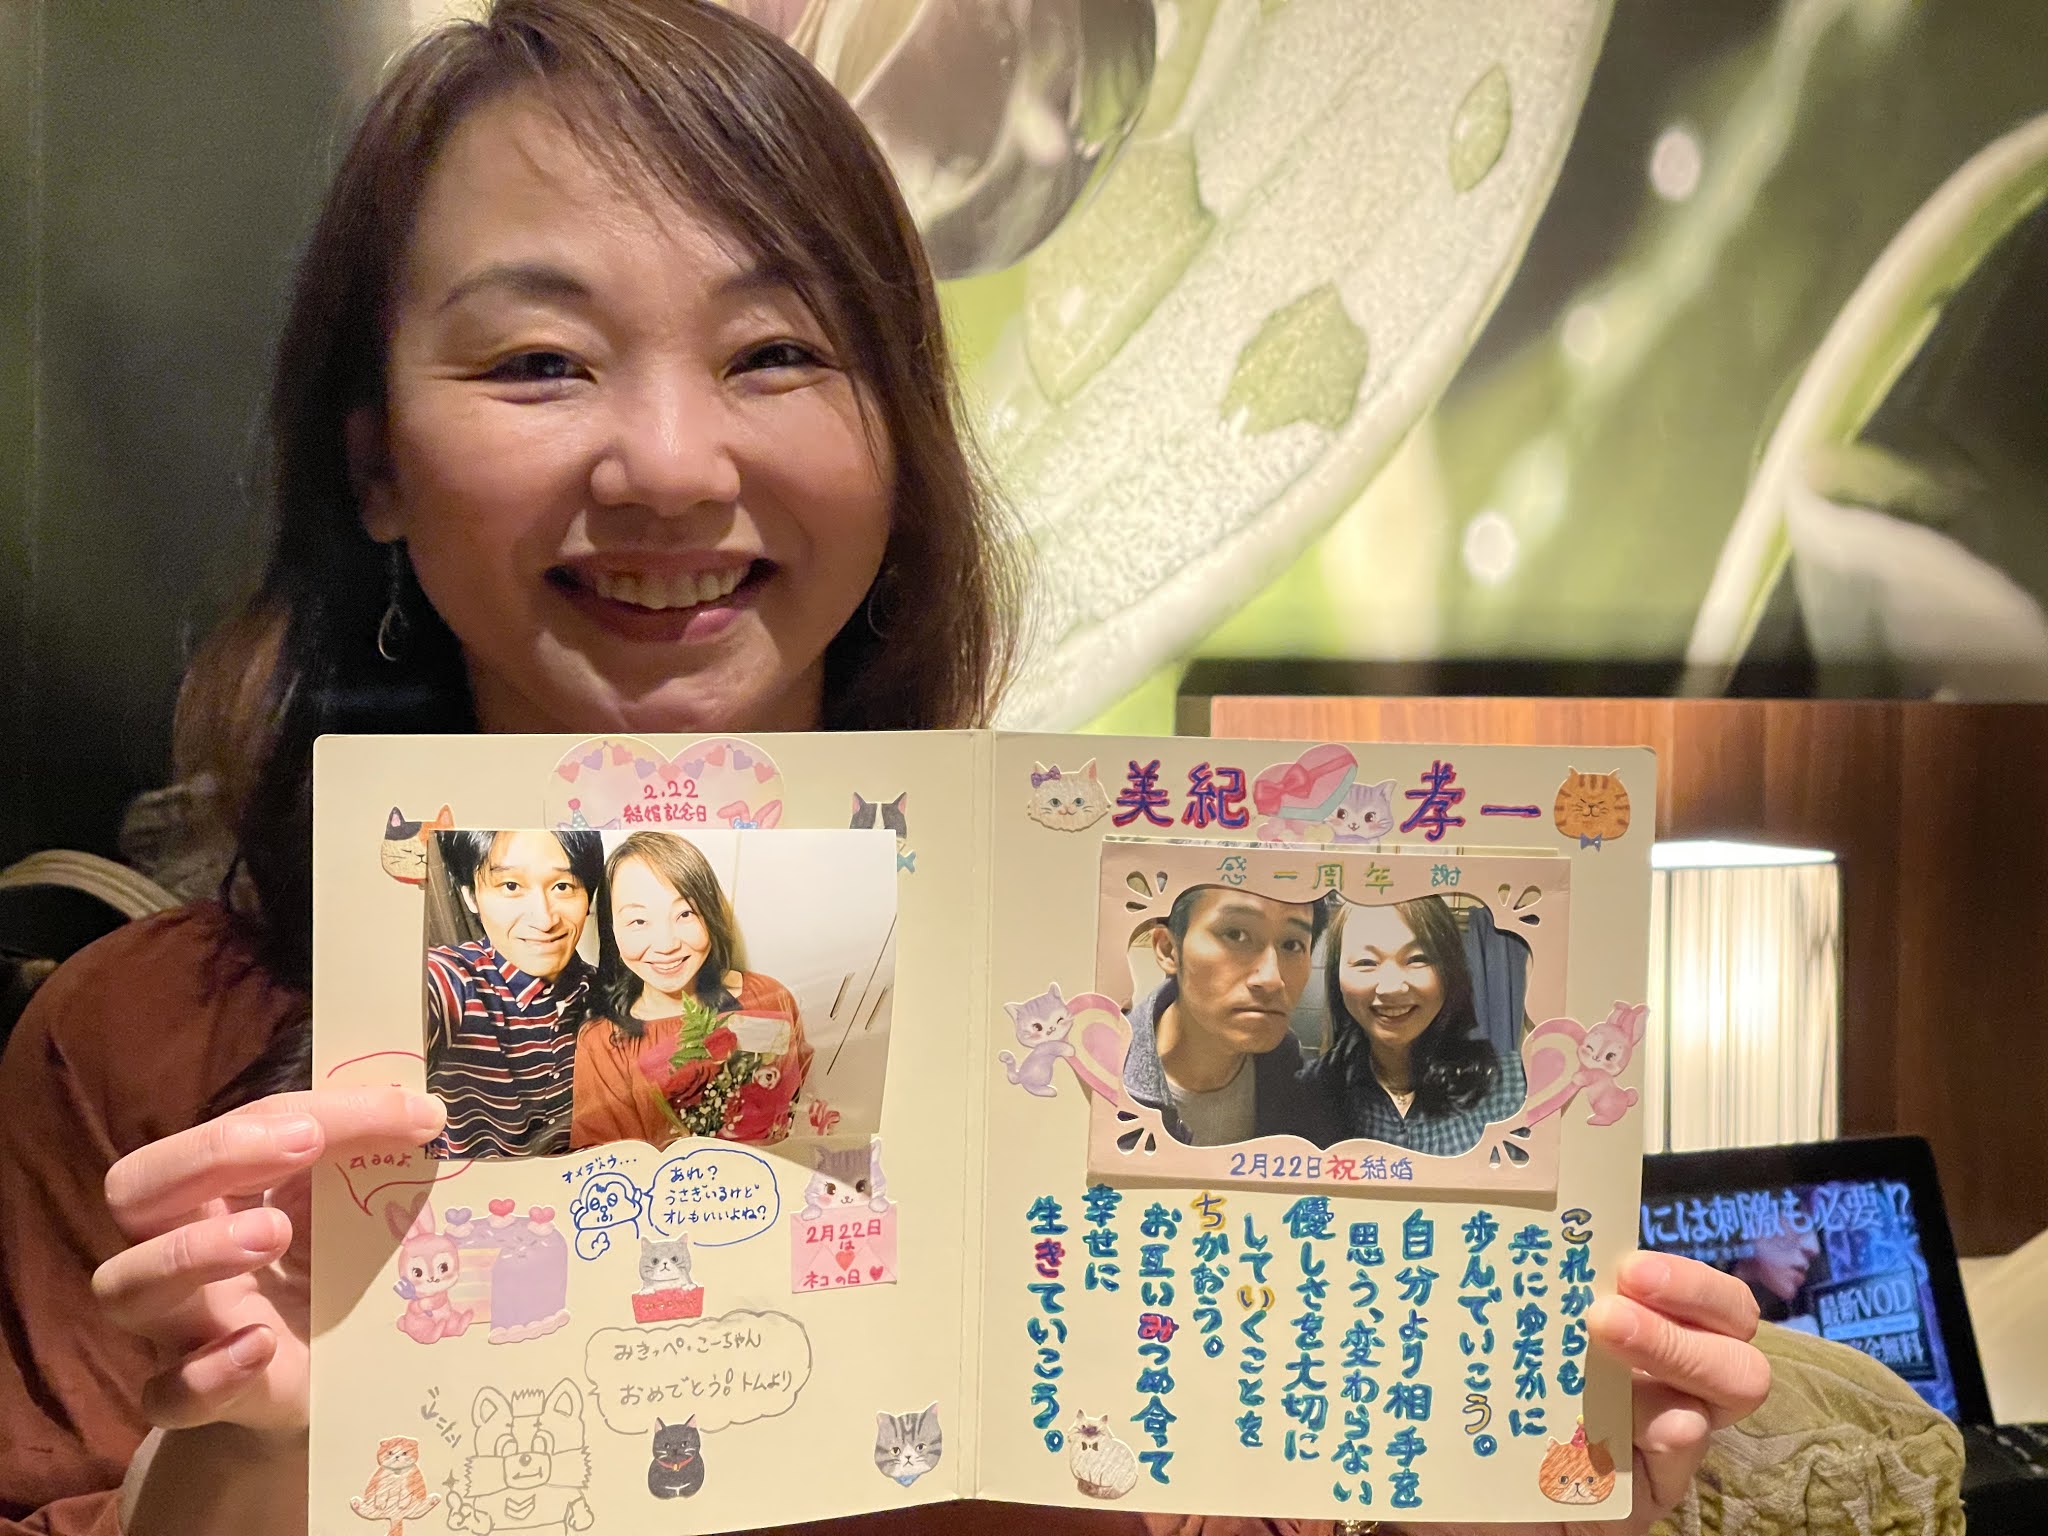 2.22
結婚記念日
オメデトウ...
あれ?
うさぎいるけど
オレもいいよね?
2月22日
は
ネコの日
みきっぺ、こーちゃん
おめでとう。トムより
美紀 孝一
感一周年謝
2月22日祝結婚
これからも
共にゆたかに
歩んでいこう。
自分より相手を
思う、変わらない
優しさを大切に
していくことを
ちかおう。
お互いみつめ合って
幸せに
生きていこう。
には刺激も必要!?
最新VOD